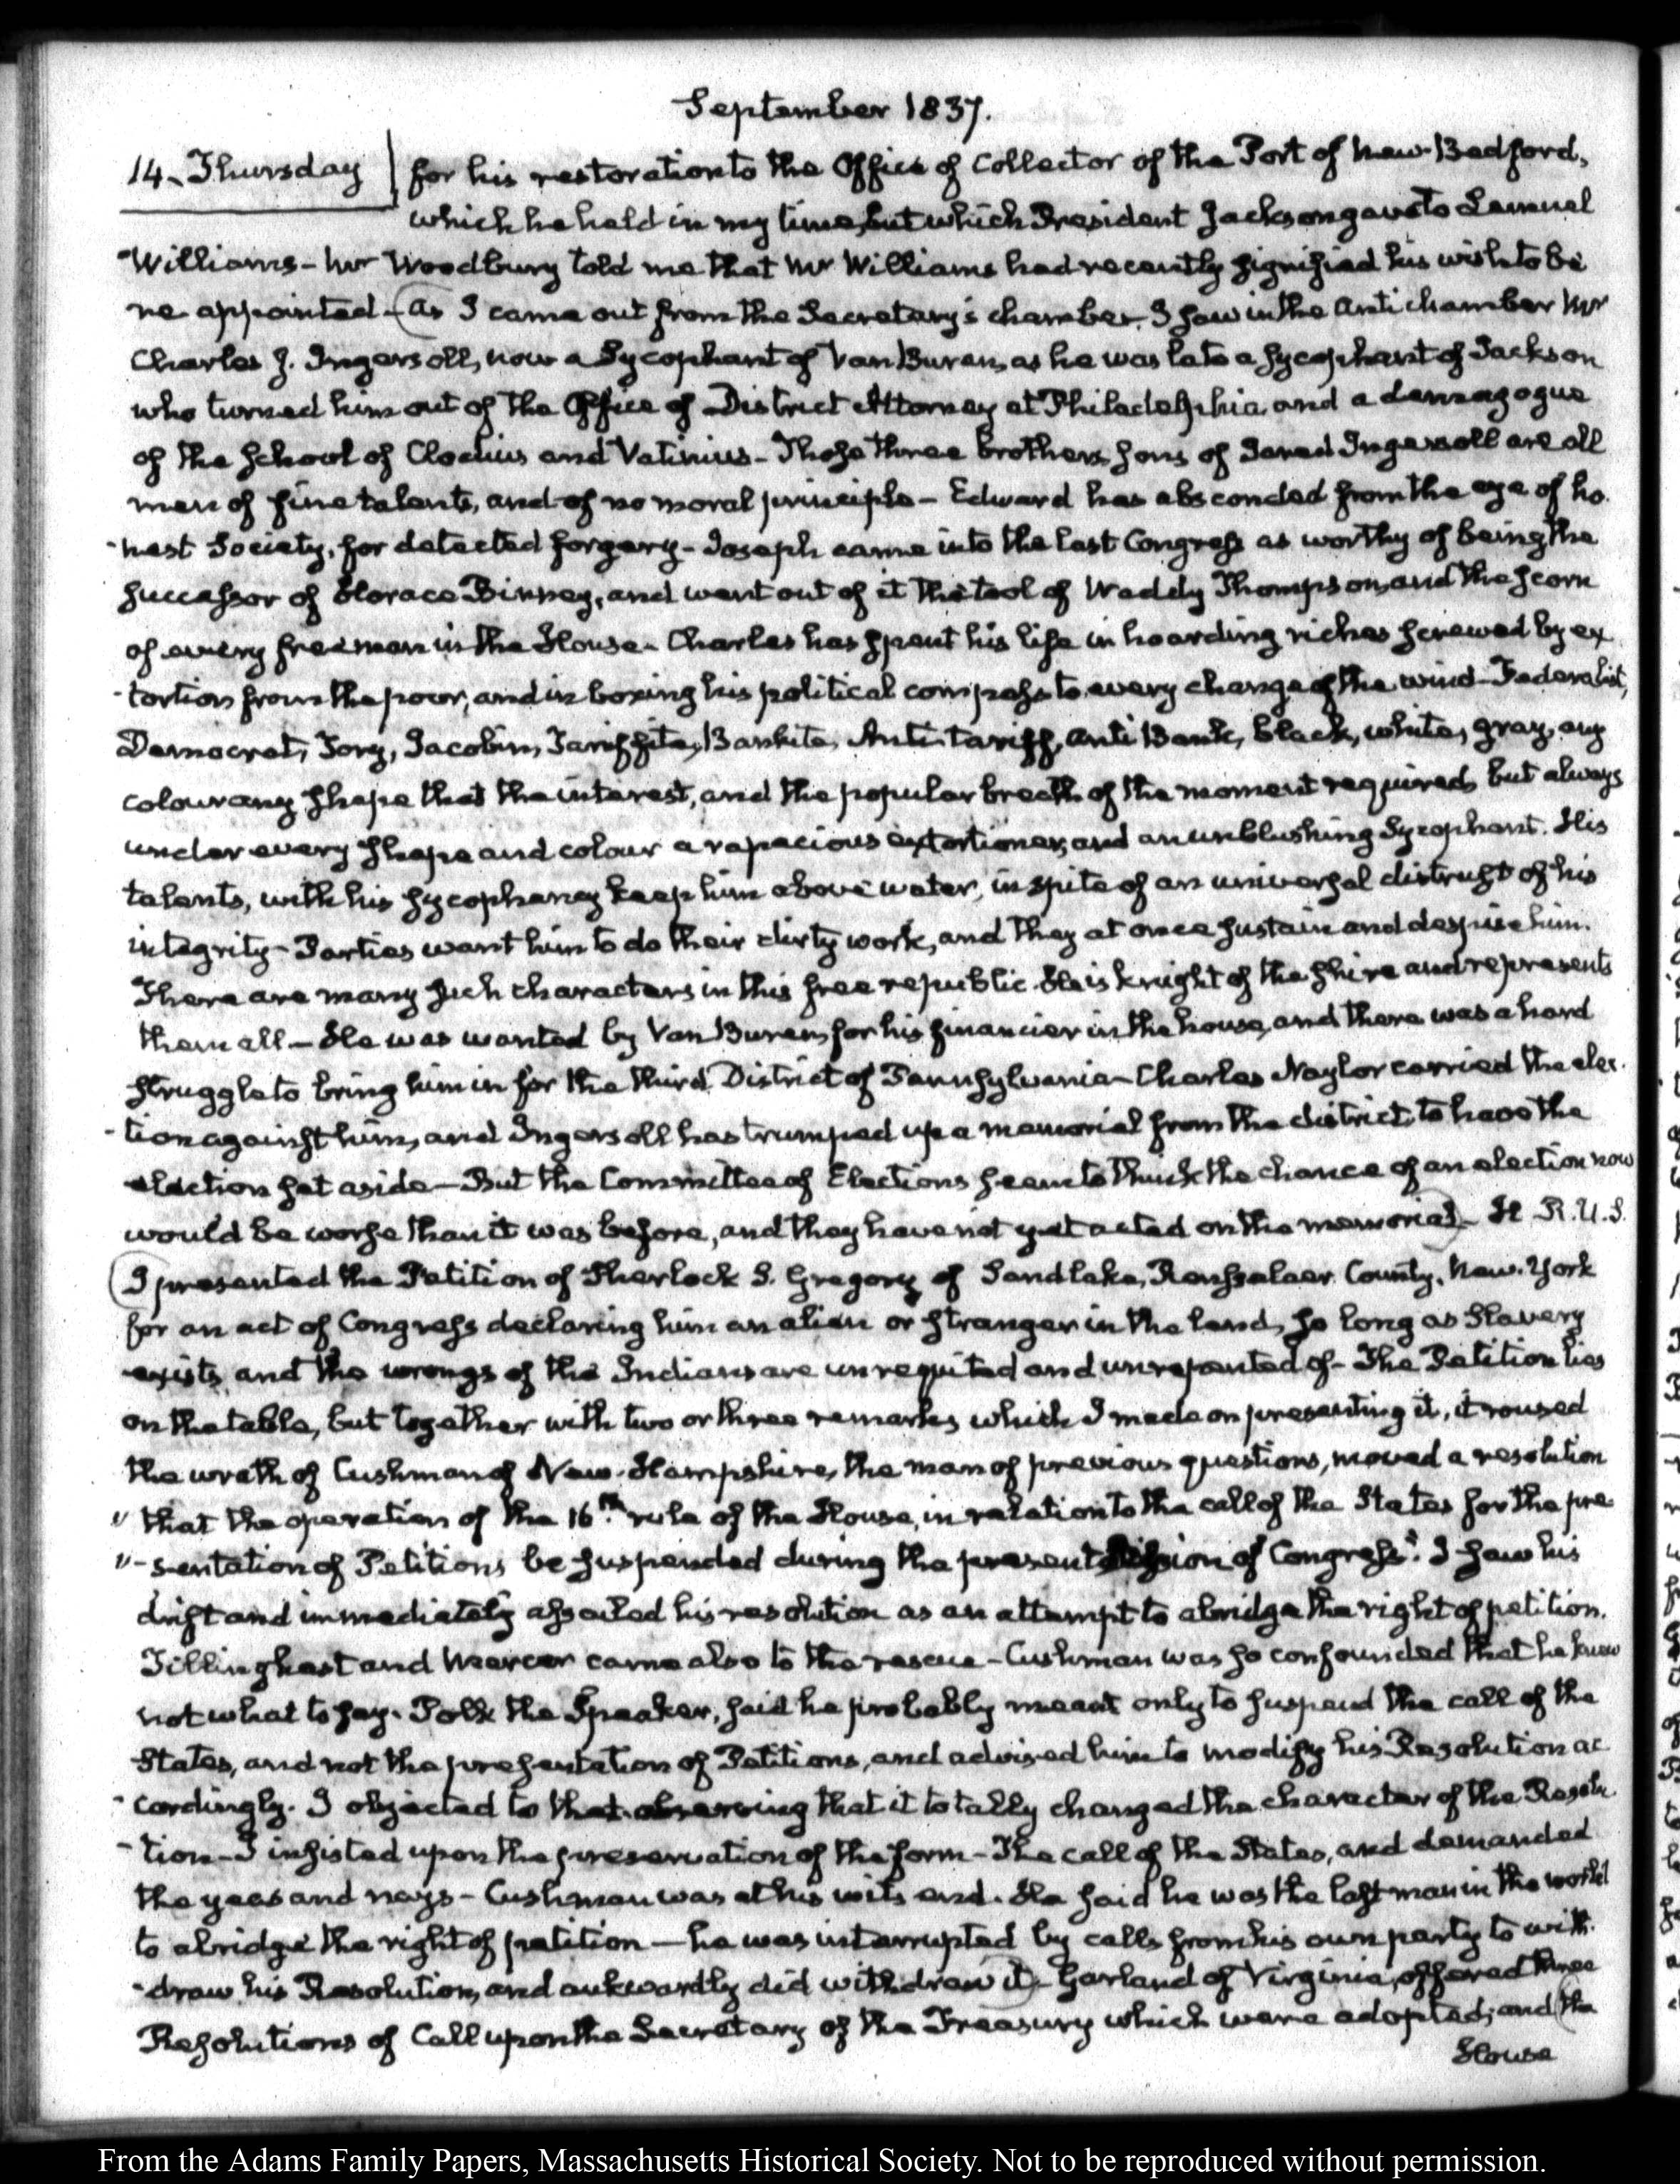 September 1837.
14. Thursday
for his restoration to the Office of Collector of the Port of New-Bedford,
which he held in my time, but which President Jackson gave to Lemuel
Williams – Mr Woodbury told me that Mr Williams had recently signified his wish to be
re appointed – (As I came out from the Secretary's chamber. I saw in the Anti chamber Mr
Charles J. Ingersoll, now a Sycophant of Van Buren, as he was late a sycophant of Jackson
who turned him out of the Office of District Attorney at Philadelphia, and a demagogue
of the school of Clodius and Vatinius – Those three brothers, sons of Jared Ingersoll are all
men of fine talents, and of no moral principle – Edward has absconded from the eye of ho-
-nest Society, for detected forgery – Joseph came into the last Congress as worthy of being the
successor of Horace Binney, and went out of it the tool of Waddy Thompson, and the scorn
of every freeman in the House – Charles has spent his life in hoarding riches screwed by ex
-tortion from the poor, and in boxing his political compass to every change of the wind – Federalist,
Democrat, Tory, Jacobin, Tariffite, Bankite, Anti-tariff, Anti Bank, black, white, gray, any
colour any shape that the interest, and the popular breath of the moment required, but always
under every shape and colour a rapacious extortioner, and an unblushing Sycophant. His
talents, with his sycophancy keep him above water, in spite of an universal distrust of his
integrity – Parties want him to do their dirty work, and they at once sustain and despise him.
There are many such characters in this free republic. He is knight of the shire and represents
them all – He was wanted by Van Buren, for his financier in the house, and there was a hard
struggle to bring him in for the third District of Pennsylvania – Charles Naylor carried the elec-
-tion against him, and Ingersoll has trumped up a memorial from the district, to have the
election set aside – But the Committee of Elections seem to think the chance of an election now
would be worse than it was before, and they have not yet acted on the memorial) – H R. U. S.
(I presented the Petition of Sherlock S. Gregory of Sandlake, Rensselaer County, New-York
for an act of Congress declaring him an alien or stranger in the land, so long as Slavery
exists, and the wrongs of the Indians are unrequited and unrepented of – The Petition lies
on the table, but together with two or three remarks, which I made on presenting it, it roused
the wrath of Cushman of New-Hampshire, the man of previous questions, moved a resolution
" that the operation of the 16th. rule of the House, in relation to the call of the States for the pre-
"-sentation of Petitions be suspended during the present session of Congress". I saw his
drift and immediately assailed his resolution as an attempt to abridge the right of petition.
Tillinghast and Mercer came also to the rescue – Cushman was so confounded that he knew
not what to say. Polk the Speaker, said he probably meant only to suspend the call of the
States, and not the presentation of Petitions, and advised him to modify his Resolution ac
-cordingly. I objected to that observing that it totally changed the character of the Resolu
-tion – I insisted upon the preservation of the form – The call of the States, and demanded
the yeas and nays – Cushman was at his wits end. He said he was the last man in the world
to abridge the right of petition — he was interrupted by calls from his own party to with-
-draw his Resolution, and aukwardly did withdraw it) – Garland of Virginia, offered three
Resolutions of Call upon the Secretary of the Treasury which were adopted; and (the
House
From the Adams Family Papers, Massachusetts Historical Society. Not to be reproduced without permission.